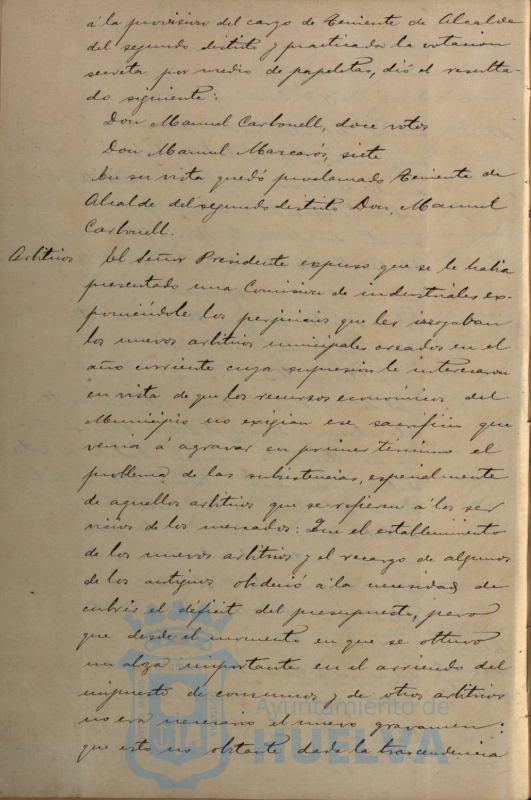 á la provision del cargo de Teniente de Alcalde
del segundo distrito y practicada la votacion
secreta por medio de papeletas, dió el resulta-
do siguiente:
Don Manuel Carbonell, doce votos
Don Manuel Mascarós, siete
En su vista quedó proclamado Teniente de
Alcalde del segundo distrito Don Manuel
Carbonell.
Arbitrios El Señor Presidente expuso que se le habia
presentado una Comision de industriales ex-
poniéndole los perjuicios que les irrogaban
los nuevos arbitrios municipales creados en el
año corriente cuya supresion le interesaron
en vista de que los recursos económicos del
Municipio no exigian ese sacrificio que
venia á agravar en primer término el
problema de las subsistencias, especialmente
de aquellos arbitrios que se refieren á los ser
vicios de los mercados: Que el establecimiento
de los nuevos arbitrios y el recargo de algunos
de los antiguos obedeció á la necesidad de
cubrir el déficit del presupuesto, pero
que desde el momento en que se obtuvo
un alza importante en el arriendo del
impuesto de consumos y de otros arbitrios
no era necesario el nuevo gravamen:
que esto no obstante dada la trascendencia
Ayuntamiento de
HUELVA